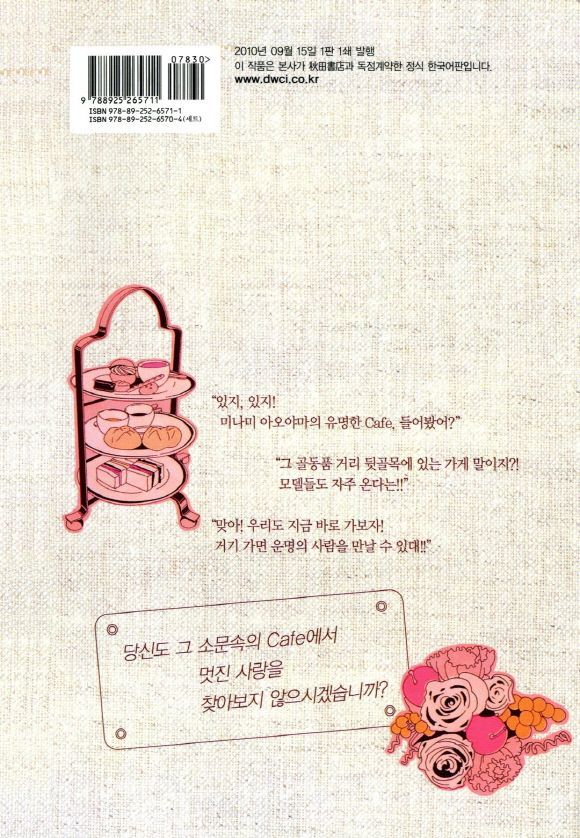 07830>
2010년 09월 15일 1판 1쇄 발행
이 작품은 본사가 秋田書店과 독점계약한 정식 한국어판입니다.
www.dwci.co.kr
9 788925 265711
ISBN 978-89-252-6571-1
ISBN 978-89-252-6570-4(세트)
“있지, 있지!
미나미 아오야마의 유명한 Cafe, 들어봤어?”
“그 골동품 거리 뒷골목에 있는 가게 말이지?!
모델들도 자주 온다는!!”
“맞아! 우리도 지금 바로 가보자!
거기 가면 운명의 사람을 만날 수 있대!!”
당신도 그 소문속의 Cafe에서
멋진 사랑을
찾아보지 않으시겠습니까?